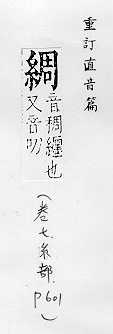 重訂直音篇
綢
音稠纏也
又音叨
（卷七．糸部．P601）